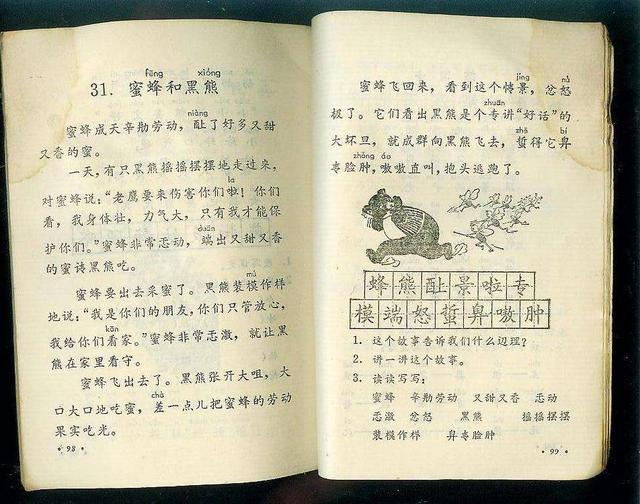 fēng xióng
31. 蜜蜂和黑熊
niàng
蜜蜂成天辛勤劳动，酿了好多又甜
又香的蜜。
一天，有只黑熊摇摇摆摆地走过来，
la
对蜜蜂说：“老鹰要来伤害你们啦！你们
看，我身体壮，力气大，只有我才能保
duān
护你们。”蜜蜂非常感动，端出又甜又香
的蜜请黑熊吃。
mú
蜜蜂要出去采蜜了。黑熊装模作样
地说：“我是你们的朋友，你们只管放心，
kān
我给你们看家。”蜜蜂非常感激，就让黑
熊在家里看守。
蜜蜂飞出去了。黑熊张开大咀，大
chà
口大口地吃蜜，差一点儿把蜜蜂的劳动
果实吃光。
·98·
jǐng nù
蜜蜂飞回来，看到这个情景，忿怒
zhuān
极了。它们看出黑熊是个专讲“好话”的
zhē bí
大坏旦，就成群向黑熊飞去，蜇得它鼻
zhǒng áo
青脸肿，嗷嗷直叫，抱头逃跑了。
蜂熊酿景啦专
模端怒蜇鼻嗷肿
1. 这个故事告诉我们什么辺理？
2. 讲一讲这个故事。
3. 读读写写：
蜜蜂 辛勤劳动 又甜又香 感动
感激 忿怒 黑熊 摇摇摆摆
装模作样 鼻青脸肿
·99·